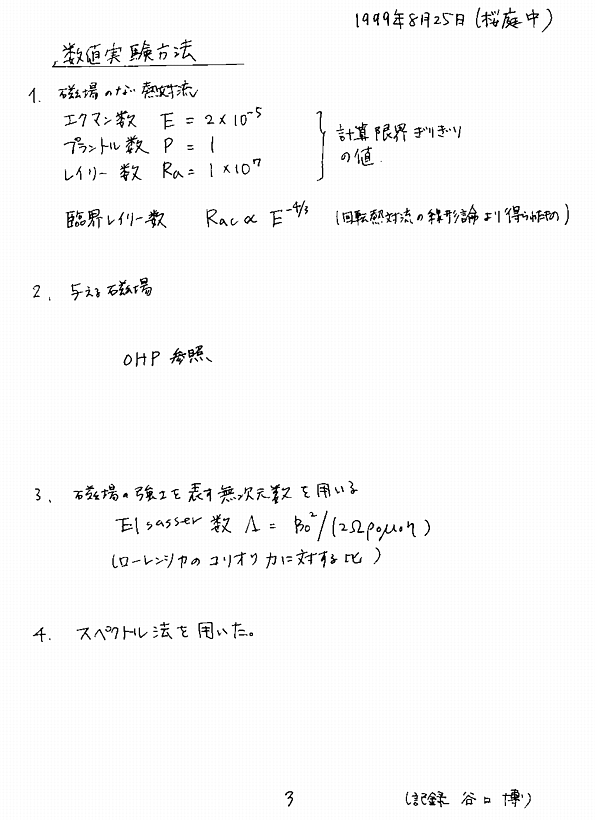 1999年8月25日(桜庭中)
数値実験方法
1. 磁場のない熱対流
エクマン数 E = 2×10^-5
プラントル数 P = 1
レイリー数 Ra = 1×10^7
計算限界ぎりぎり
の値.
臨界レイリー数 Rac ∝ E^-4/3 (回転熱対流の線形論より得られたもの)
2. 与える磁場
OHP参照、
3. 磁場の強さを表す無次元数を用いる
Elsasser数 Λ = B₀²/(2Ωρ₀μ₀η)
(ローレンツ力のコリオリ力に対する比)
4. スペクトル法を用いた。
3
(記録 谷口 博)